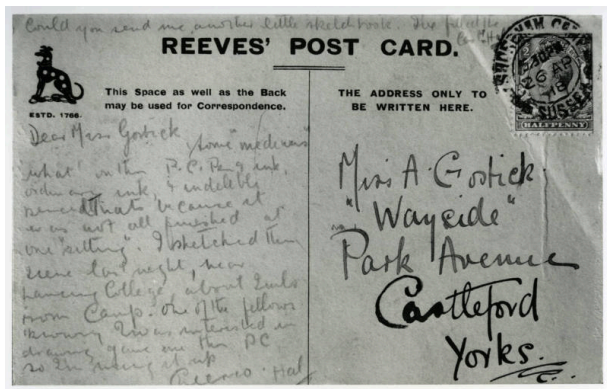 Could you send me another little sketchbook. I've filled the
REEVES' POST CARD.
ESTD. 1766.
This Space as well as the Back
may be used for Correspondence.
THE ADDRESS ONLY TO
BE WRITTEN HERE.
SHOREHAM CAMP
26 AP
18
SUSSEX
HALFPENNY
Dear Miss Gostick
Some "medium"
what" on this P.C. Pen & ink,
ordinary ink & indelible
pencil because it
was not all finished at
one "sitting" I sketched this
scene last night, near
Lancing College about 2 mls
from Camp. One of the fellows
knowing I was interested in
drawing gave me this PC
so I'm using it up
Harry
Miss A. Gostick
"Wayside"
Park Avenue
Castleford
Yorks.